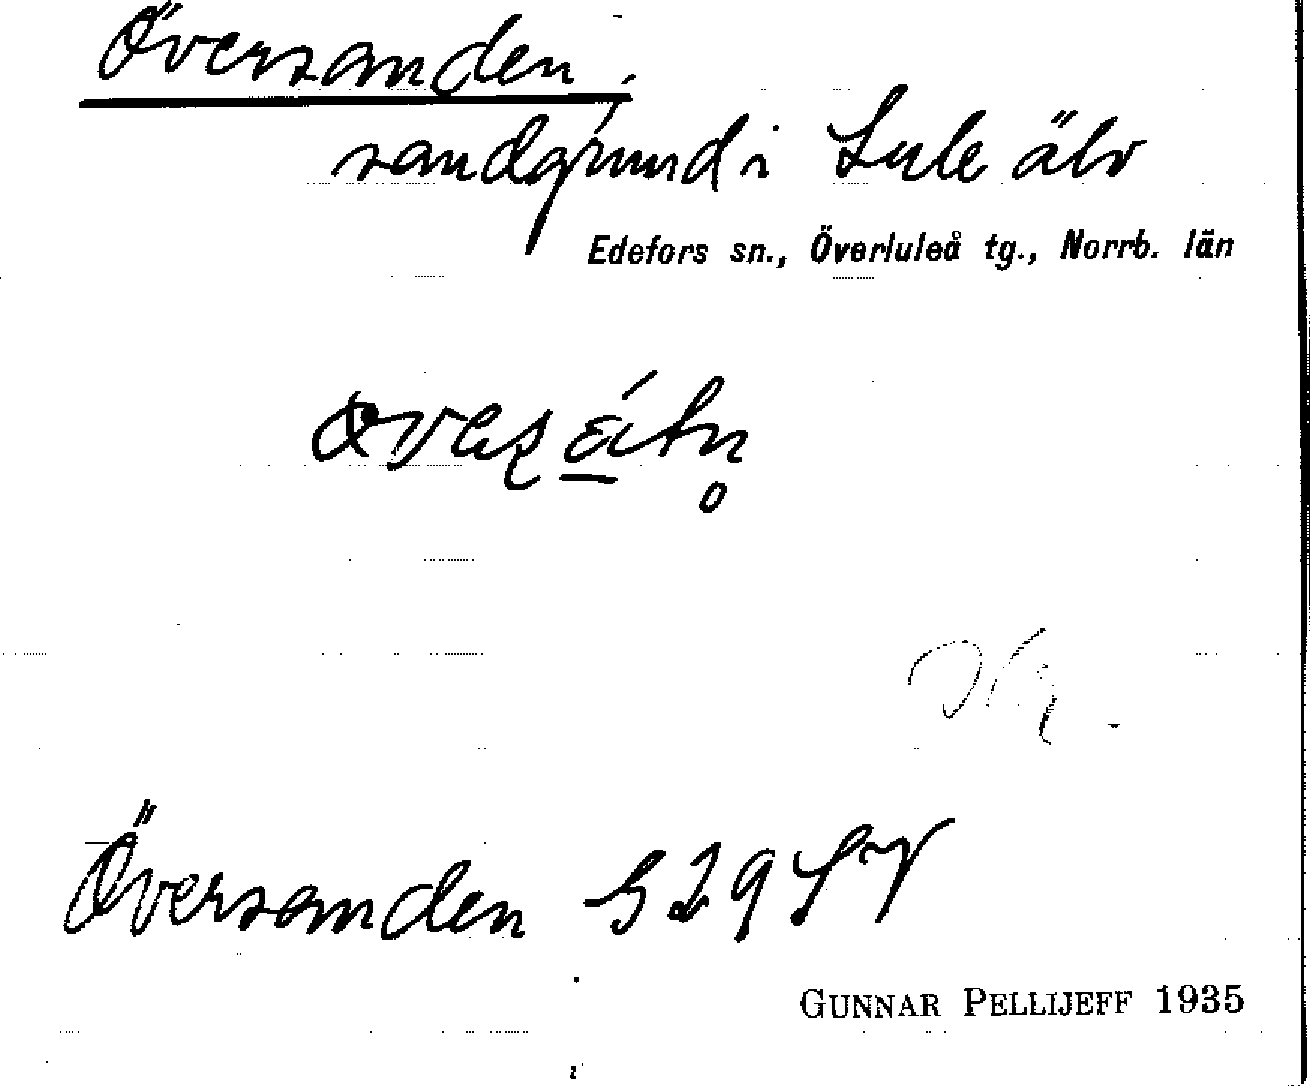 Översanden,
sandgrund i Lule älv
Edefors sn., Överluleå tg., Norrb. län
Översanden S 29 SV
GUNNAR PELLIJEFF 1935